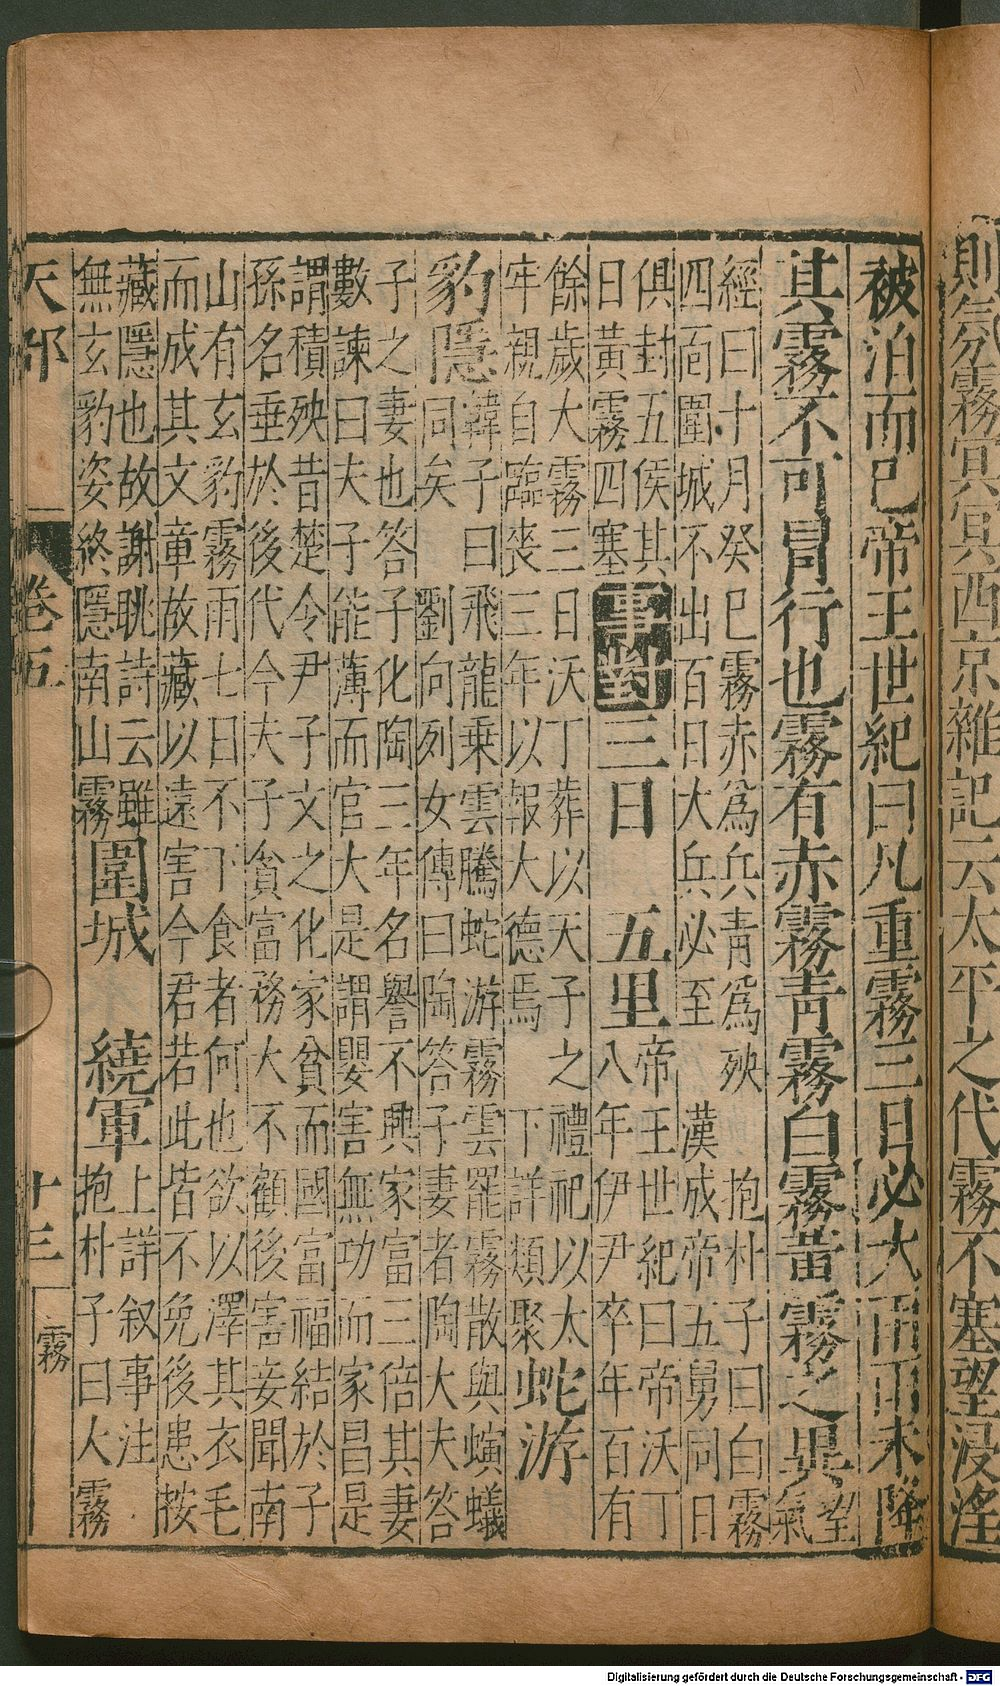 則氛霧冥冥西京雜記云太平之代霧不塞望浸淫
被泊而已帝王世紀曰凡重霧三日必大雨雨未降
其霧不可冒行也霧有赤霧青霧白霧黃霧之異望氣
經曰十月癸巳霧赤爲兵青爲殃 抱朴子曰白霧
四面圍城不出百日大兵必至 漢成帝五舅同日
俱封五侯其
日黃霧四塞
事對 三日 五里
帝王世紀曰帝沃丁
八年伊尹卒年百有
餘歲大霧三日沃丁葬以天子之禮祀以太
牢親自臨喪三年以報大德焉 下詳類聚
蛇游
豹隱
韓子曰飛龍乘雲騰蛇游霧雲罷霧散與螾蟻
同矣 劉向列女傳曰陶答子妻者陶大夫答
子之妻也答子化陶三年名譽不興家富三倍其妻
數諫曰夫子能薄而官大是謂嬰害無功而家昌是
謂積殃昔楚令尹子文之化家貧而國富福結於子
孫名垂於後代今夫子貧富務大不顧後害妾聞南
山有玄豹霧雨七日不下食者何也欲以澤其衣毛
而成其文章故藏以遠害今君若此皆不免後患桉
藏隱也故謝眺詩云雖
無玄豹姿終隱南山霧
圍城 繞軍
上詳叙事注
抱朴子曰人霧
天部 卷五 十三 霧
Digitalisierung gefördert durch die Deutsche Forschungsgemeinschaft - DFG